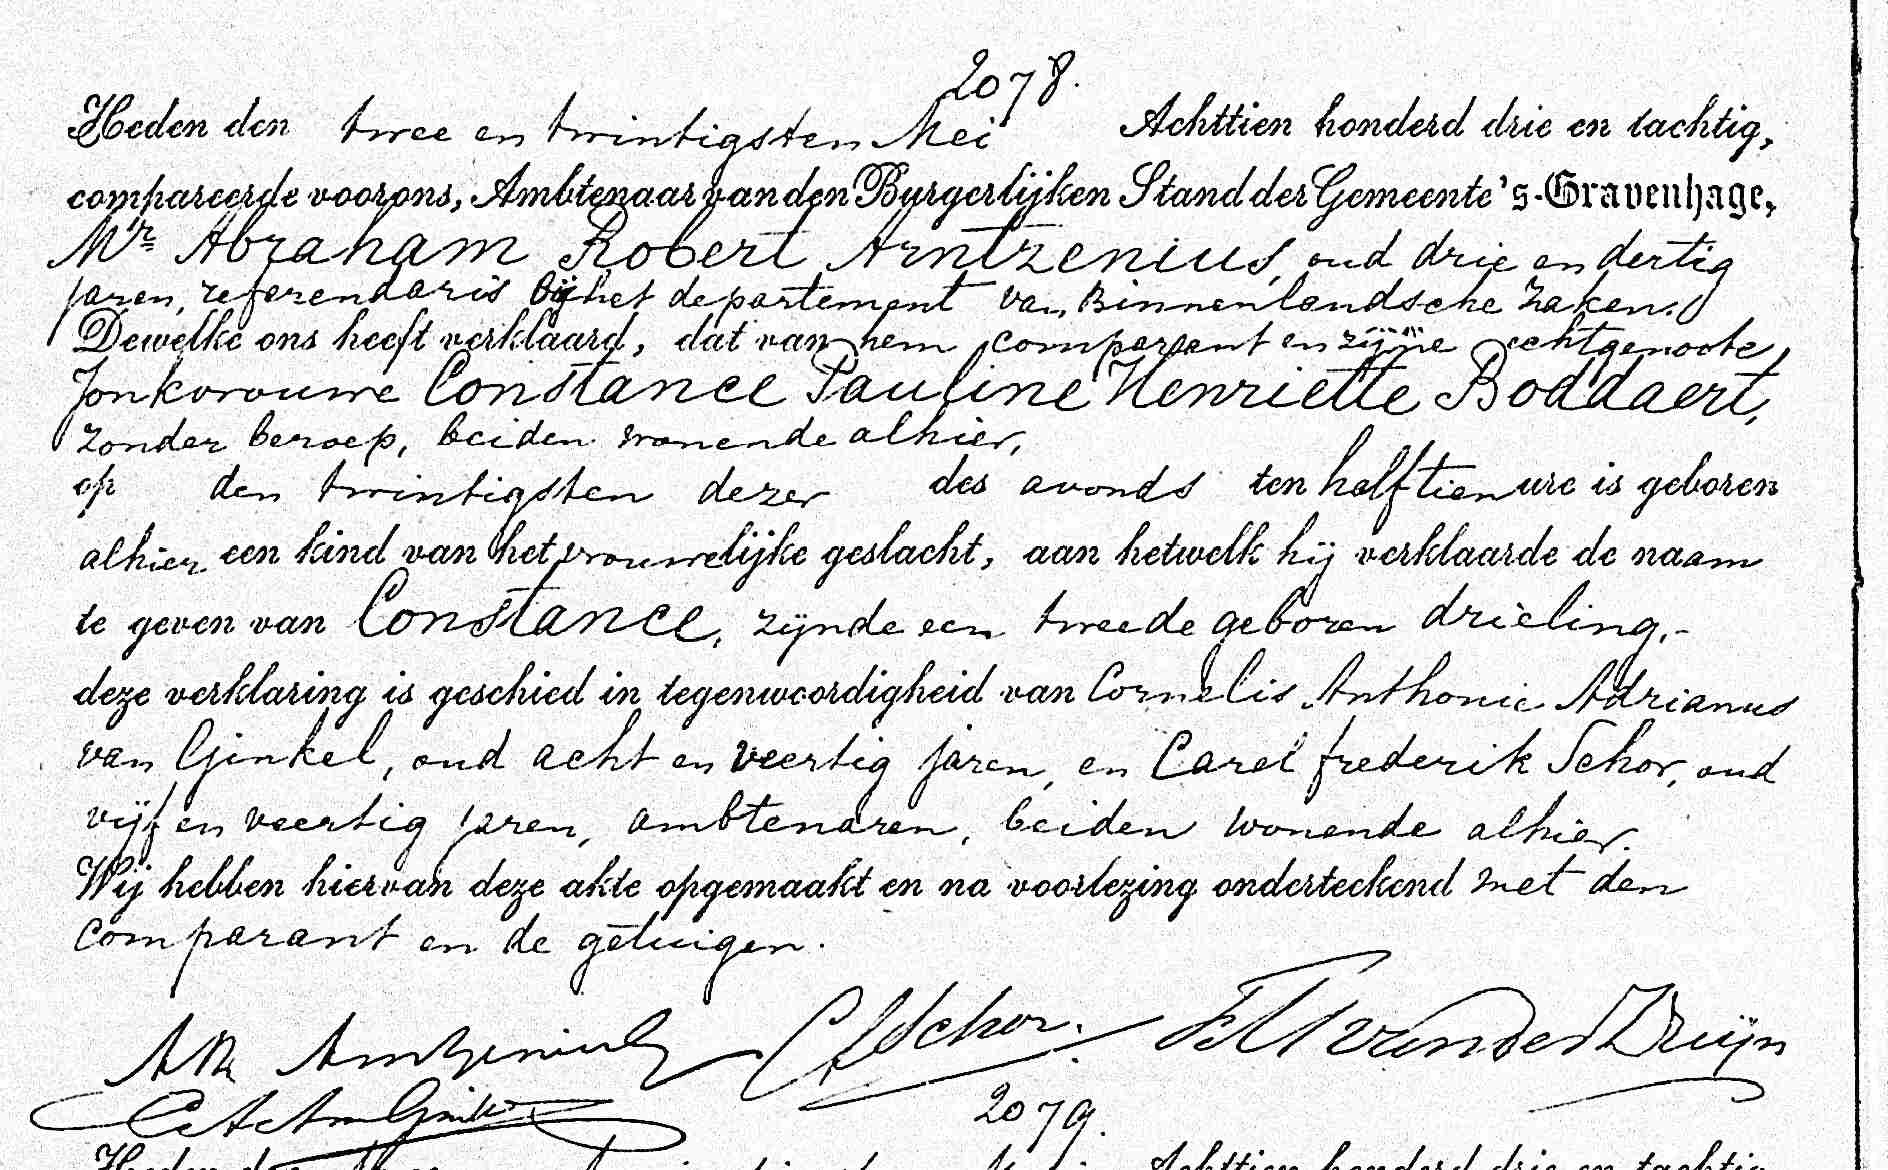 2078.
Heden den twee en twintigsten Mei Achttien honderd drie en tachtig,
compareerde voor ons, Ambtenaar van den Burgerlijken Stand der Gemeente 's-Gravenhage,
Mr. Abraham Robert Arntzenius, oud drie en dertig
jaren, referendaris bij het departement van Binnenlandsche Zaken.
Dewelke ons heeft verklaard, dat van hem comparant en zijne echtgenoote,
Jonkvrouwe Constance Pauline Henriette Boddaert,
zonder beroep, beiden wonende alhier,
op den twintigsten dezer des avonds ten half tien ure is geboren
alhier een kind van het vrouwelijke geslacht, aan hetwelk hij verklaarde de naam
te geven van Constance, zijnde een tweede geboren drieling.-
deze verklaring is geschied in tegenwoordigheid van Cornelis Anthonie Adrianus
van Ginkel, oud acht en veertig jaren, en Carel frederik Schor, oud
vijf en veertig jaren, ambtenaren, beiden wonende alhier.
Wij hebben hiervan deze akte opgemaakt en na voorlezing onderteekend met den
comparant en de getuigen.
AR Arntzenius CFSchor. van der Kruijn
CAA van Ginkel
2079.
Heden den Mei Achttien honderd drie en tachtig